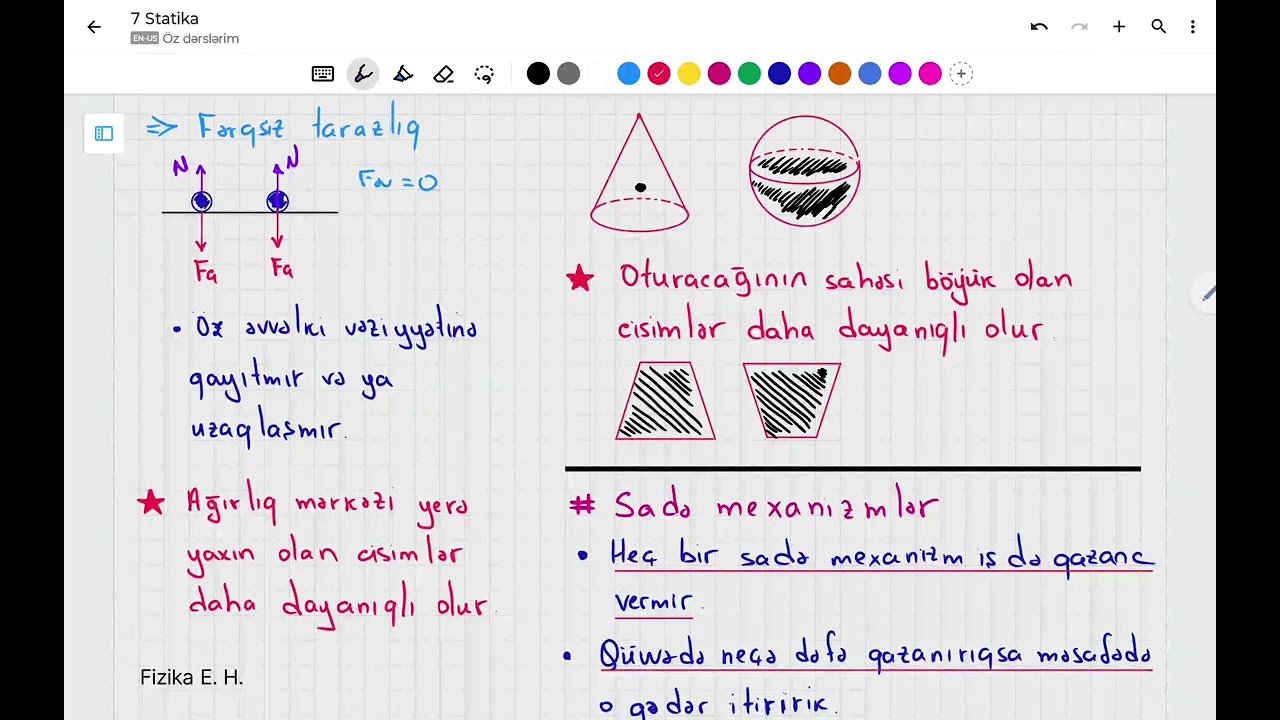 7 Statika
EN-US Öz dərslərim
⇒ Fərqsiz tarazlıq
N N
Fəv = 0
Fq Fq
• Öz əvvəlki vəziyyətinə
qayıtmır və ya
uzaqlaşmır.
★ Ağırlıq mərkəzi yerə
yaxın olan cisimlər
daha dayanıqlı olur.
Fizika E. H.
★ Oturacağının sahəsi böyük olan
cisimlər daha dayanıqlı olur.
# Sadə mexanizmlər
• Heç bir sadə mexanizm iş də qazanc
vermir.
• Qüvvədə neçə dəfə qazanırıqsa məsafədə
o qədər itiririk.